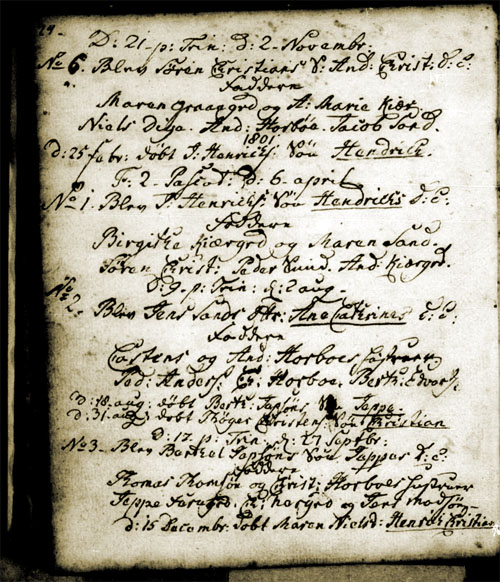 D: 21 p: Trin: d: 2 Novembr:
No 6. Blev Søren Christians S: And: Christ: d: C:
Faddere
Maren graagrd og A: Marie Kiær
Niels Diga. And: Horboe. Jacob Sand.
1801
D: 25 febr: døbt J: Henrichs: Søn Hendrich.
Fr: 2 Pascat: D: 6 april
No 1. Blev J: Henrichs: Søn Hendrichs d: C:
Faddere
Birgithe Kiærgrd og Maren Sand.
Søren Christ: Peder Svind. And: Kiærgrd.
D: 9 p: Trin: d: 2 aug.
No 2. Blev Jens Sands Dtr: Ane Cathrines d: C:
Faddere
Castens og And: Horboes hustruer
Ped: Anders: C: Horboe. Berth:
D: 18 aug: døbt Berth: Japsøns Søn Jeppe
D: 31 aug: døbt Thøger Christens: Søn Christian
D: 17 p: Trin: d: 27 Septbr:
No 3. Blev Barthel Japsøns Søn Jappes d: C:
Faddere
Thomas Thomsøn og Christ: Horboes hustruer
Jeppe og Jens Madsøn
d: 15 Decembr: døbt Maren Nielsd: Christian